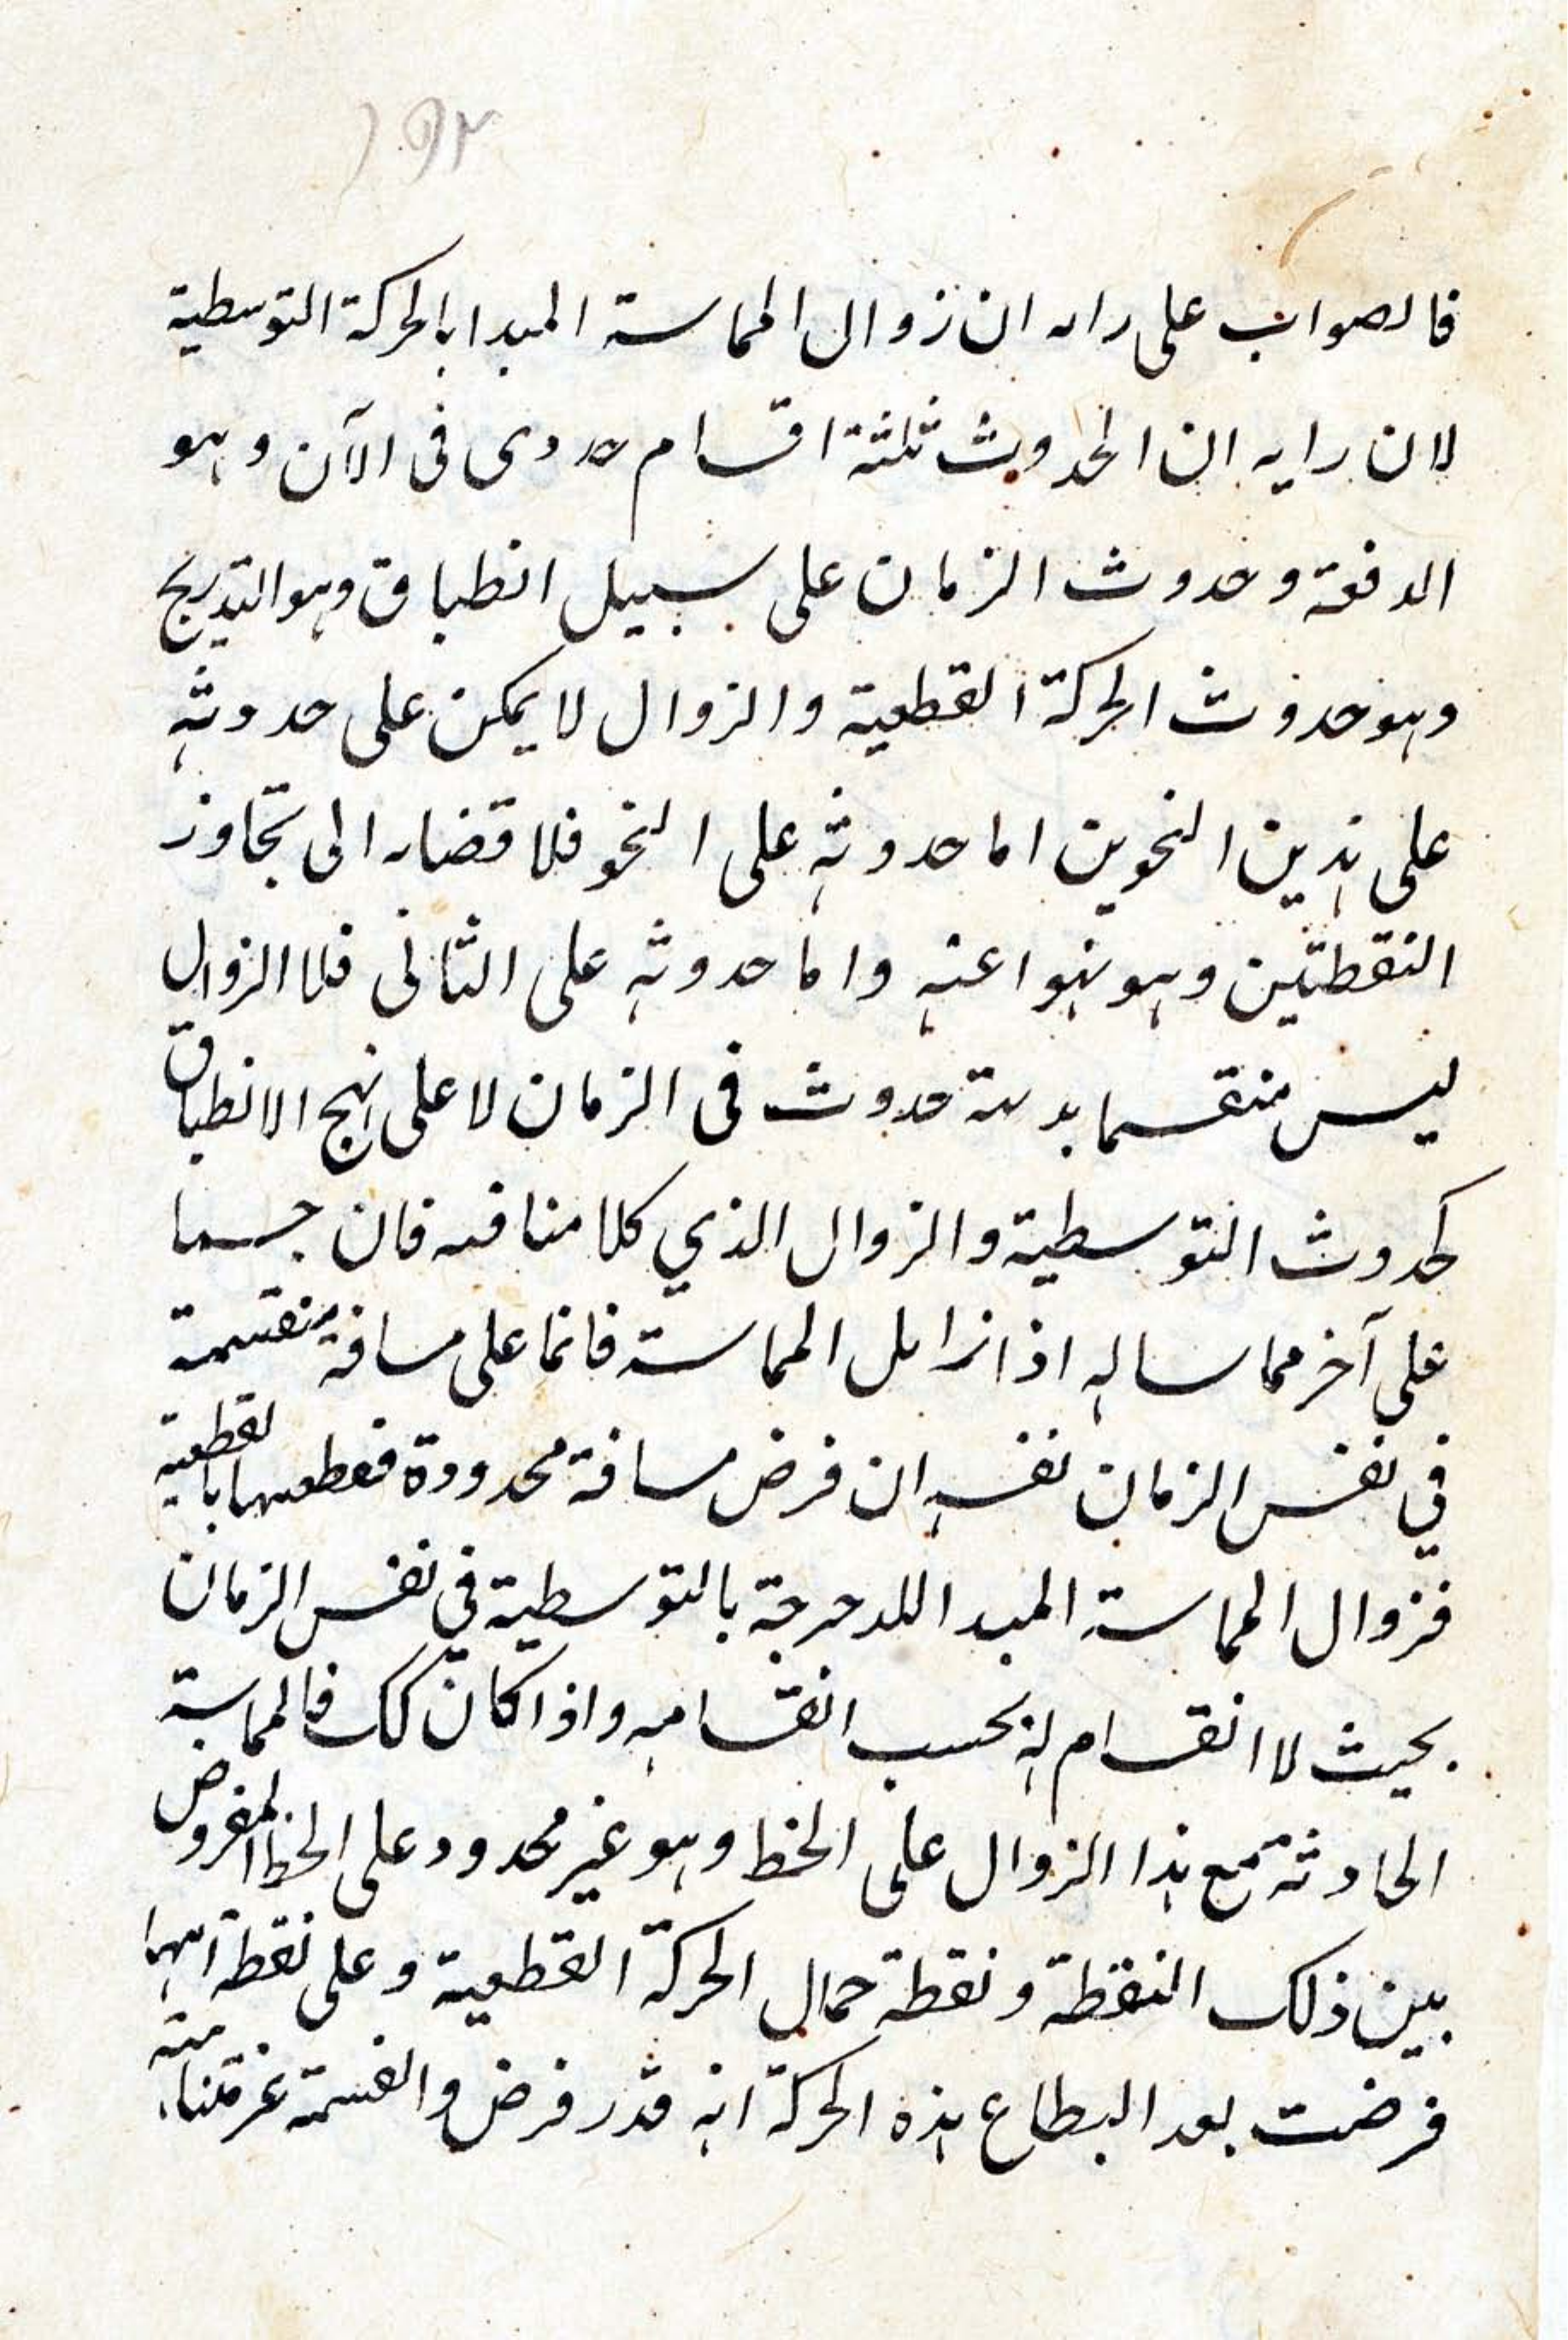 فالصواب على رايه ان زوال المماسة المبدا بالحركة التوسطية
لان رايه ان الحدوث ثلثة اقسام فى الآن وهو
الدفعة وحدوث الزمان على سبيل انطباق وهو التدريج
وهو حدوث الحركة القطعية والزوال لا يمكن على حدوثه
على هذين النحوين اما حدوثه على النحو فلا الى تجاوز
النقطتين وهو واما حدوثه على الثانى فلا الزوال
ليس منقسما حدوث فى الزمان لا على نهج الانطباق
كحدوث التوسطية والزوال الذي فان جسما
على آخر مماسا له اذا المماسة فانما على مسافة منقسمة
في نفس الزمان نفسه ان فرض مسافة محدودة بالقطعية
فزوال المماسة المبدا بالتوسطية في نفس الزمان
بحيث لا انقسام له بحسب انقسامه واذا كان كك فالمماسة
الحادثة مع هذا الزوال على الخط وهو غير محدود على الخط المفروض
بين ذلك النقطة ونقطة الحركة القطعية وعلى نقطة
فرضت بعد هذه الحركة انه قدر فرض والقسمة